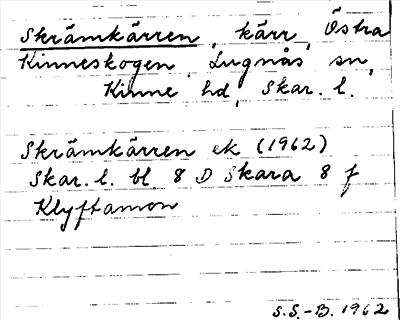 Skrämkärren, kärr, Östra
Kinneskogen, Lugnås sn,
Kinne hd, Skar. l.
Skrämkärren ek (1962)
Skar. l. bl. 8 D Skara 8 f
Klyftamon
S.S.-B. 1962